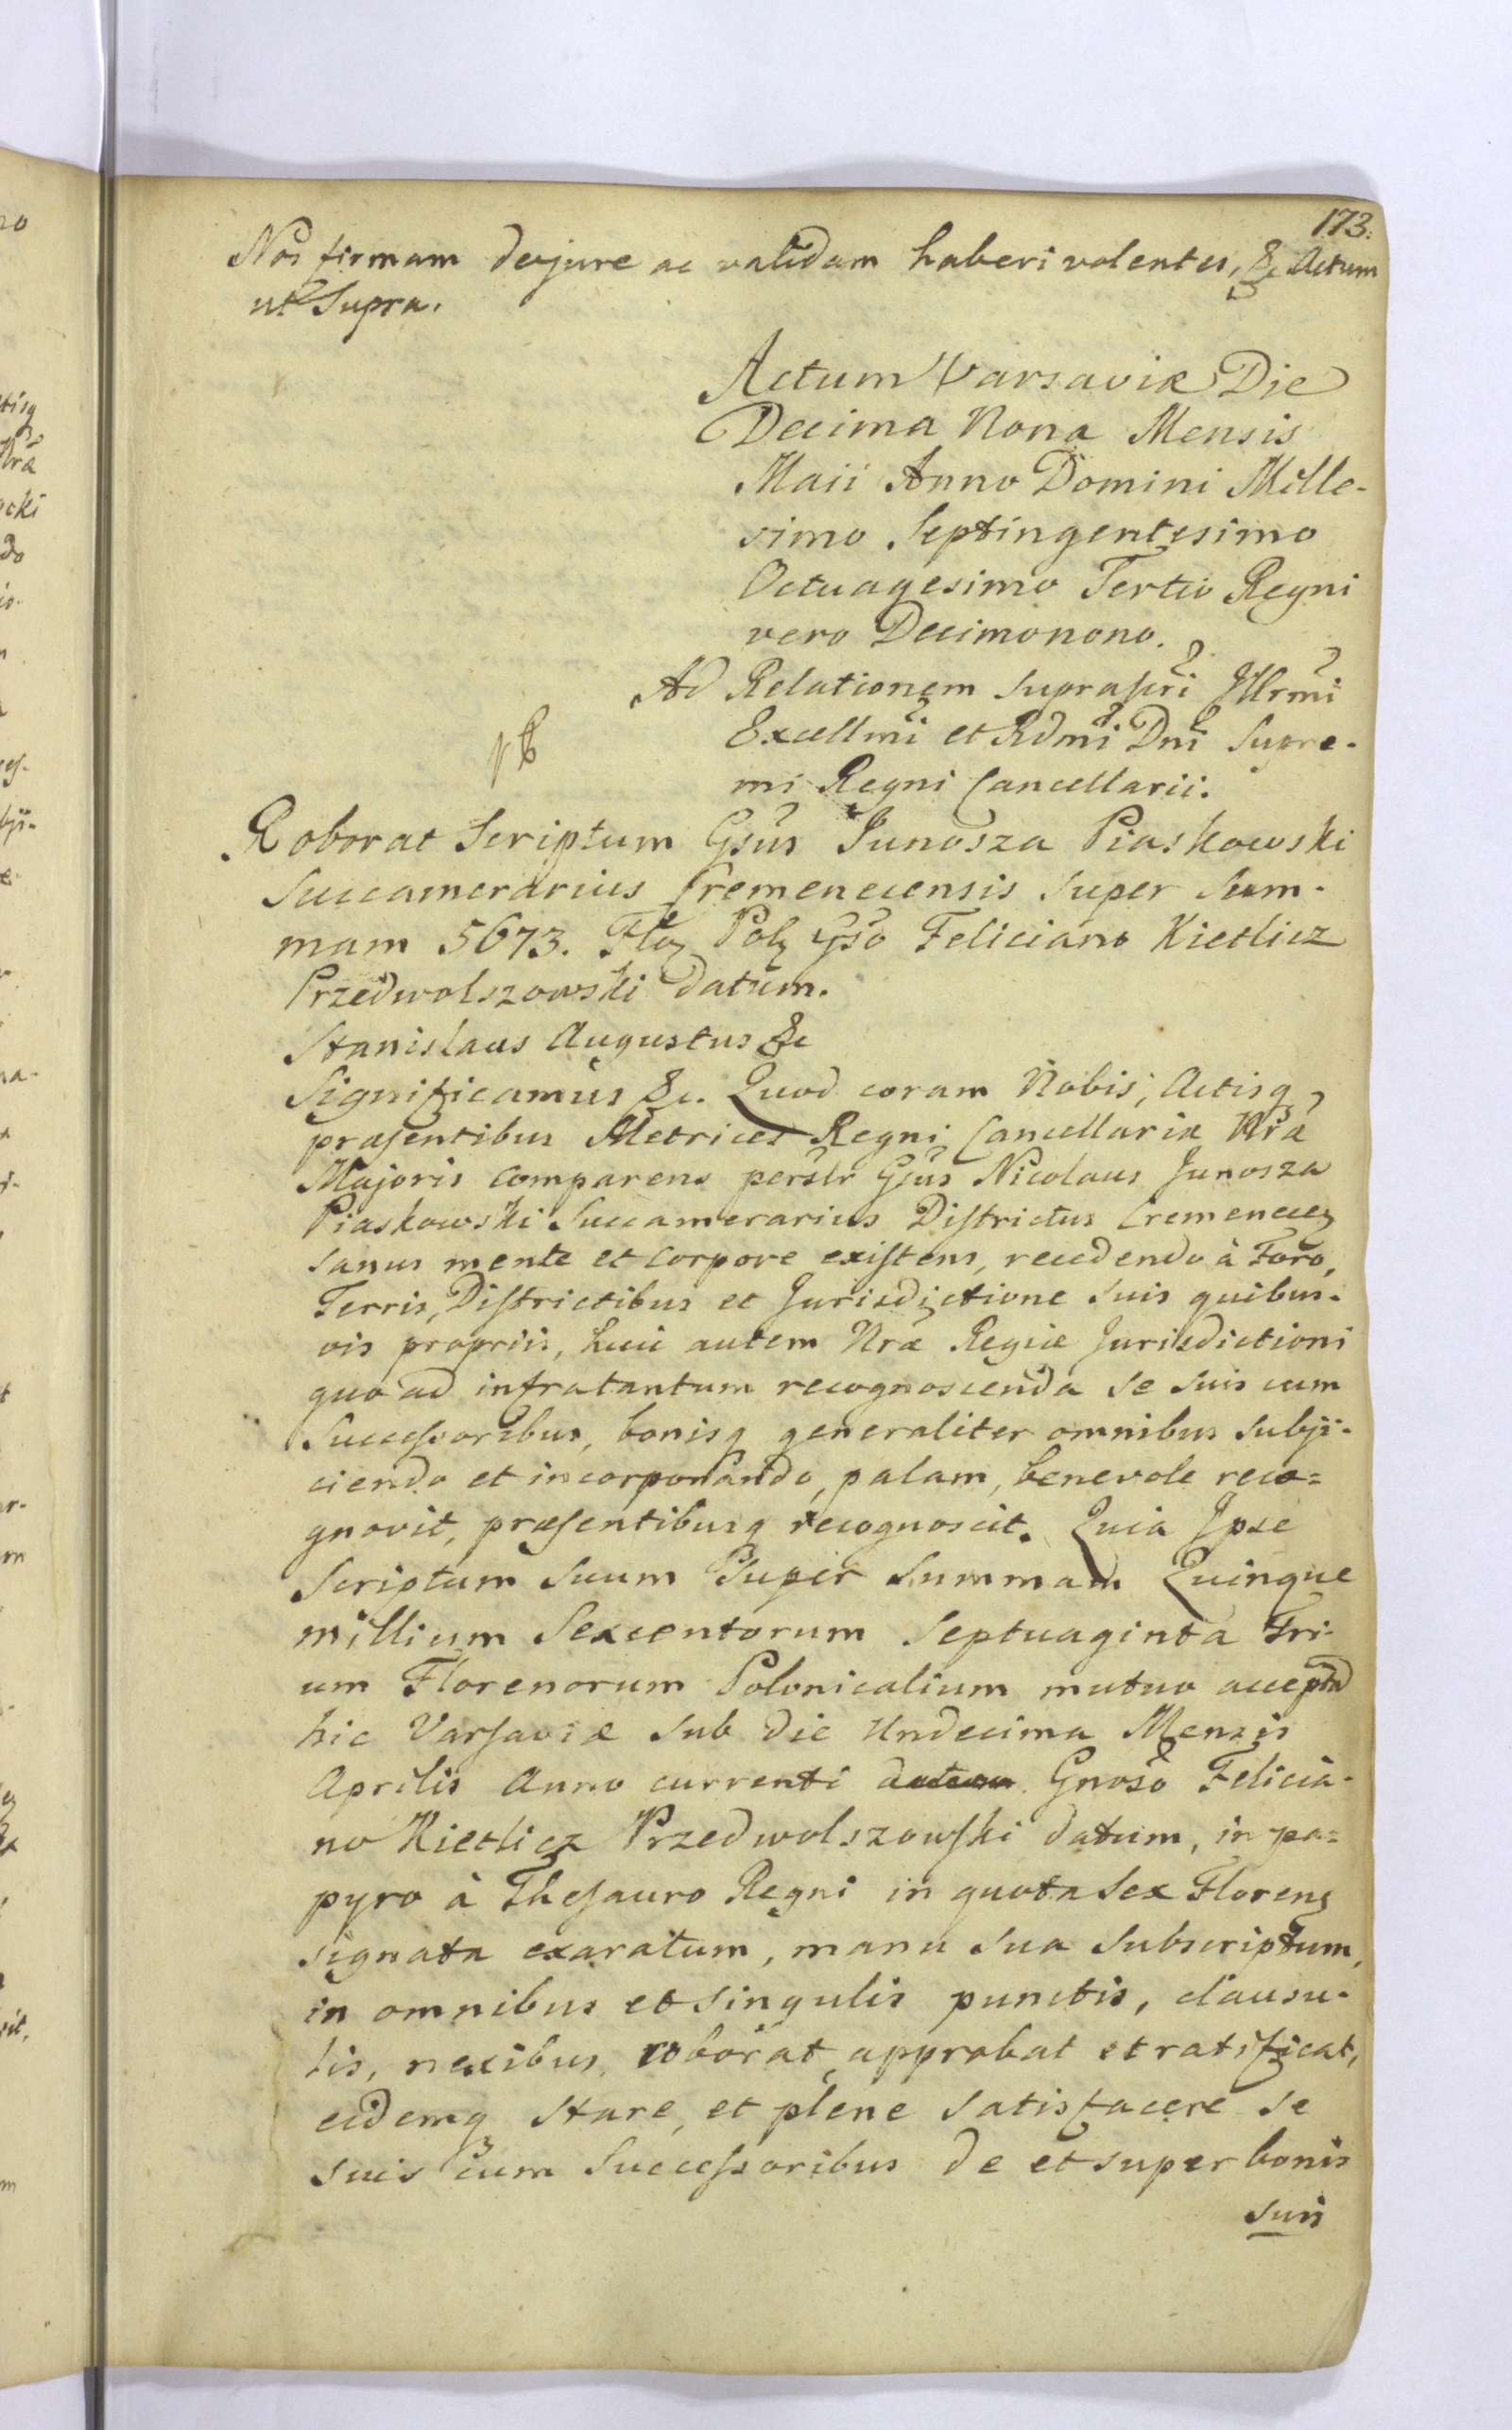 173.
Nos firmam dejure ac validam haberi volentes, &c Actum
ut Supra.
Actum Varsaviæ Die
Decima Nona Mensis
Maii Anno Domini Mille-
simo Septingentesimo
Octuagesimo Tertio Regni
vero Decimonono.
Ad Relationem supraspti Illrmi
Excellmi et Rdmi Dni Supre-
mi Regni Cancellarii.
Roborat Scriptum Gsus Junosza Piaskowski
Succamerarius Cremenecensis super Sum-
mam 5673. Flo Pol Gso Feliciano Kietlicz
Przedwolszowski datum.
Stanislaus Augustus &c
Significamus &c. Quod coram Nobis, Actisq
præsentibus Metrices Regni Cancellariæ Nræ
Majoris comparens perslr Gsus Nicolaus Junosza
Piaskowski Succamerarius Districtus Cremenecen
sanus mente et corpore existens, recedendo à Foro,
Terris, Districtibus et Jurisdictione suis quibus-
vis propriis, huic autem Nræ Regiæ Jurisdictioni
quo ad infratantum recognoscenda se suis cum
Successoribus, bonisq generaliter omnibus subji-
ciendo et incorporando, palam, benevole reco=
gnovit, præsentibusq recognoscit. Quia Ipse
Scriptum suum super summam Quinque
millium Sexcentorum Septuaginta Tri-
um Florenorum Polonicalium mutuo accepta
hic Varsaviæ sub die Undecima Mensis
Aprilis Anno currenti Gnoso Felicia-
no Kietlicz Przedwolszowski datum, in pa=
pyro à Thesauro Regni in quota sex Floren
signata exaratum, manu sua subscriptum,
in omnibus et singulis punctis, clausu-
lis, nexibus roborat approbat et ratificat,
eidemq stare, et plene satisfacere se
suis cum Successoribus de et super bonis
suis